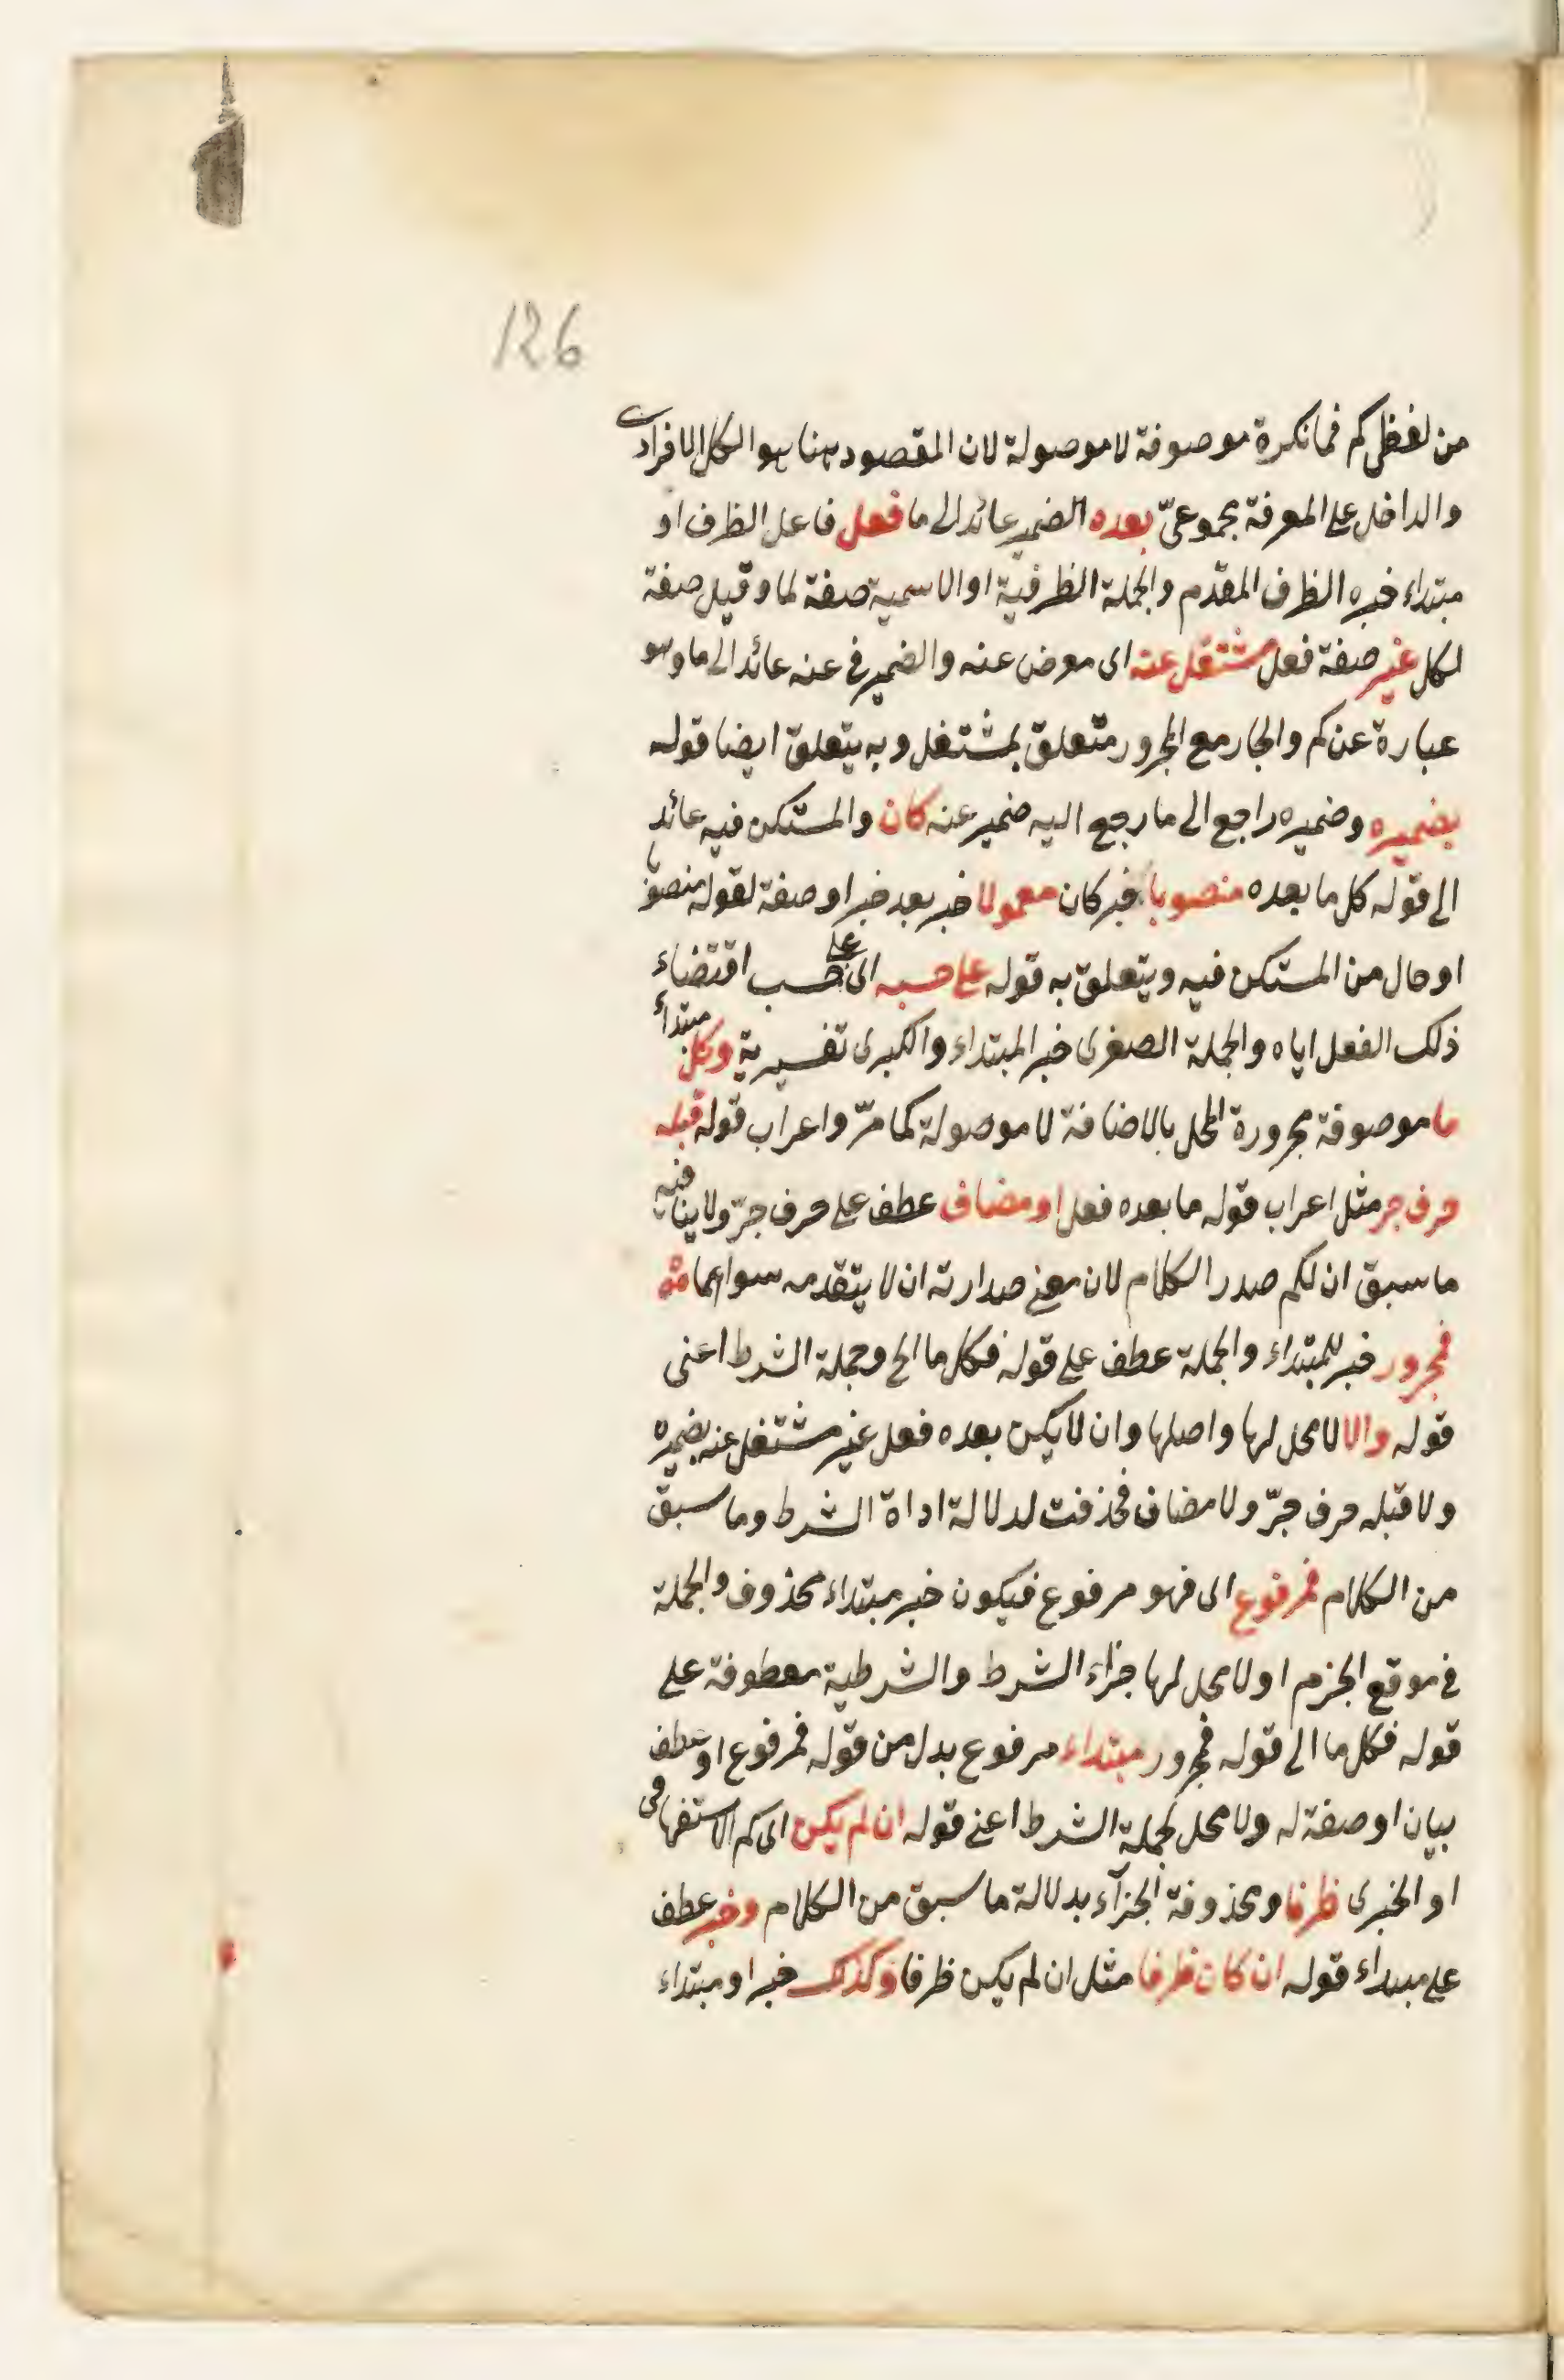 126
من لفظ كم فما نكرة موصوفة لا موصولة لان المقصود هنا هو الكل الافرادى
والداخل على المعرفة مجموعىّ بعده الضمير عائد الى ما فعل فاعل الظرف او
مبتداء خبره الظرف المقدم والجملة الظرفية او الاسمية صفة لما وقيل صفة
لكل غير صفة فعل مشتغل عنه اى معرض عنه والضمير فى عنه عائد الى ما وهو
عبارة عن كم والجار مع المجرور متعلق بمشتغل وبه يتعلق ايضا قوله
بضميره وضميره راجع الى ما رجع اليه ضمير عنه كان والمستكن فيه عائد
الى قوله كل ما بعده منصوبا خبر كان معمولا خبر بعد خبر او صفة لقوله منصوبا
او حال من المستكن فيه ويتعلق به قوله على حسبه اى على حسب اقتضاء
ذلك الفعل اياه والجملة الصغرى خبر المبتداء والكبرى تفسيرية وكل مبتداء
ما موصوفة مجرورة المحل بالاضافة لا موصولة كما مرّ واعراب قوله قبله
حرف جر مثل اعراب قوله ما بعده فعل او مضاف عطف على حرف جرّ ولا ينافيه
ما سبق ان لكم صدر الكلام لان معنى صدارته ان لا يتقدمه سواهما
فمجرور خبر للمبتداء والجملة عطف على قوله فكل ما الخ وجملة الشرط اعنى
قوله والا لا محل لها واصلها وان لا يكن بعده فعل غير مشتغل عنه بضميره
ولا قبله حرف جرّ ولا مضاف فحذفت لدلالة اداة الشرط وما سبق
من الكلام فمرفوع اى فهو مرفوع فيكون خبر مبتداء محذوف والجملة
فى موقع الجزم او لا محل لها جزاء الشرط والشرطية معطوفة على
قوله فكل ما الى قوله فمجرور مبتداء مرفوع بدل من قوله فمرفوع او عطف
بيان او صفة له ولا محل لجملة الشرط اعنى قوله ان لم يكن اى كم الاستفهامى
او الخبرى ظرفا ومحذوفة الجزآء بدلالة ما سبق من الكلام وخبر عطف
على مبتداء قوله ان كان ظرفا مثل ان لم يكن ظرفا وكذلك خبر او مبتداء